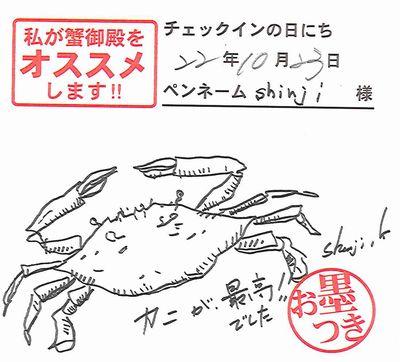 私が蟹御殿を
オススメ
します!!
チェックインの日にち
22年10月23日
ペンネーム shinji 様
shinji.h
カニが最高!!
でした
お墨つき